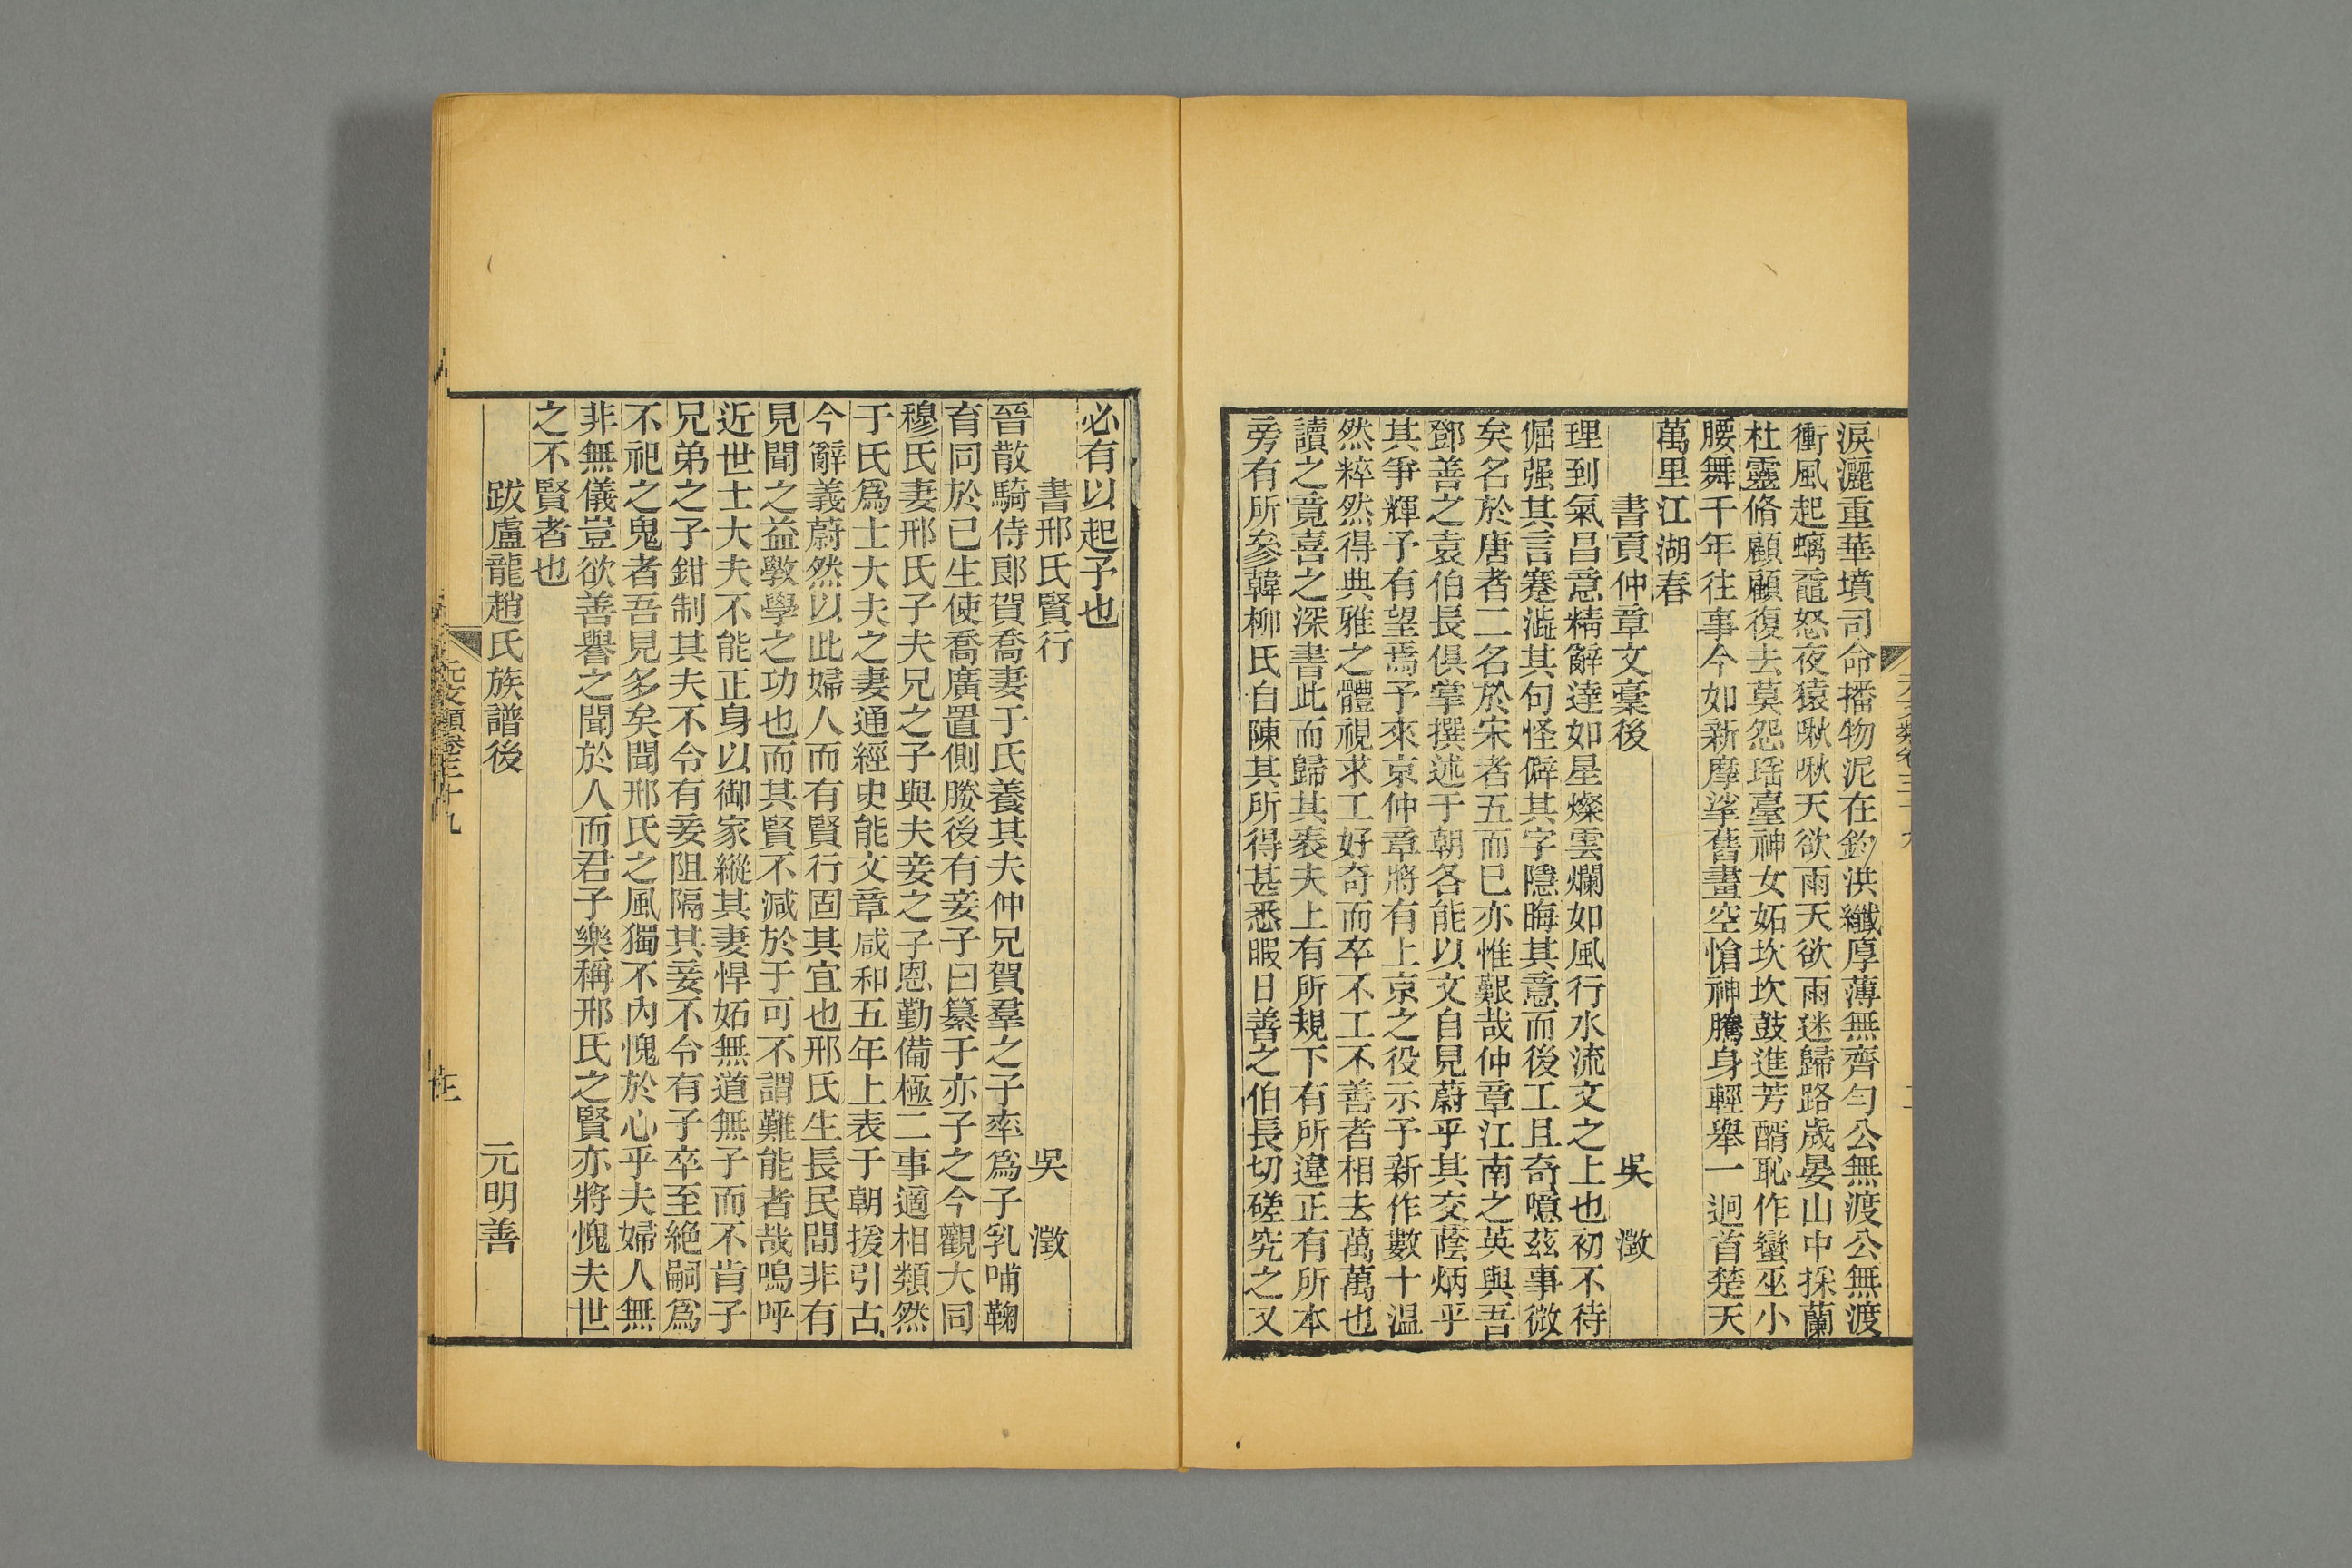 淚灑重華墳司命播物泥在鈞洪纖厚薄無齊勻公無渡公無渡
衝風起螭鼉怒夜猿啾啾天欲雨天欲雨迷歸路歲晏山中採蘭
杜靈脩顧顧復去莫怨瑶臺神女妬坎坎鼓進芳醑恥作蠻巫小
腰舞千年往事今如新摩挲舊畫空愴神騰身輕舉一迴首楚天
萬里江湖春
書貢仲章文槀後 吳 澂
理到氣昌意精辭達如星燦雲爛如風行水流文之上也初不待
倔强其言蹇澁其句怪僻其字隱晦其意而後工且奇噫茲事微
矣名於唐者二名於宋者五而已亦惟艱哉仲章江南之英與吾
鄧善之袁伯長俱掌撰述于朝各能以文自見蔚乎其交蔭炳乎
其爭輝予有望焉予來京仲章將有上京之役示予新作數十温
然粹然得典雅之體視求工好奇而卒不工不善者相去萬萬也
讀之竟喜之深書此而歸其袠夫上有所規下有所違正有所本
旁有所參韓柳氏自陳其所得甚悉暇日善之伯長切磋究之又
必有以起予也
書邢氏賢行 吳 澂
晉散騎侍郎賀喬妻于氏養其夫仲兄賀羣之子率爲子乳哺鞠
育同於己生使喬廣置側媵後有妾子曰纂于亦子之今觀大同
穆氏妻邢氏子夫兄之子與夫妾之子恩勤備極二事適相類然
于氏爲士大夫之妻通經史能文章咸和五年上表于朝援引古
今辭義蔚然以此婦人而有賢行固其宜也邢氏生長民間非有
見聞之益斆學之功也而其賢不減於于可不謂難能者哉嗚呼
近世士大夫不能正身以御家縱其妻悍妬無道無子而不肯子
兄弟之子鉗制其夫不令有妾阻隔其妾不令有子卒至絶嗣爲
不祀之鬼者吾見多矣聞邢氏之風獨不內愧於心乎夫婦人無
非無儀豈欲善譽之聞於人而君子樂稱邢氏之賢亦將愧夫世
之不賢者也
跋盧龍趙氏族譜後 元明善
元文類卷三十九